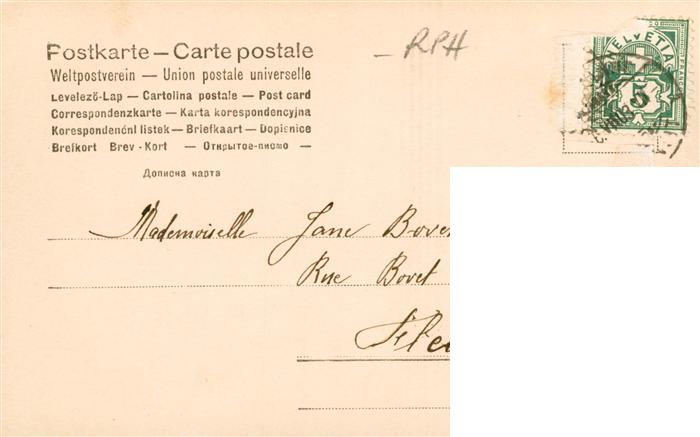 Postkarte — Carte postale
Weltpostverein — Union postale universelle
Levelező-Lap — Cartolina postale — Post card
Correspondenzkarte — Karta korespondencyjna
Korespondenční listek — Briefkaart — Dopisnice
Brefkort Brev-Kort — Открытое-письмо —
Дописна карта
RPH
HELVETIA
5
Mademoiselle Jane Bove
Rue Bovet
Fle